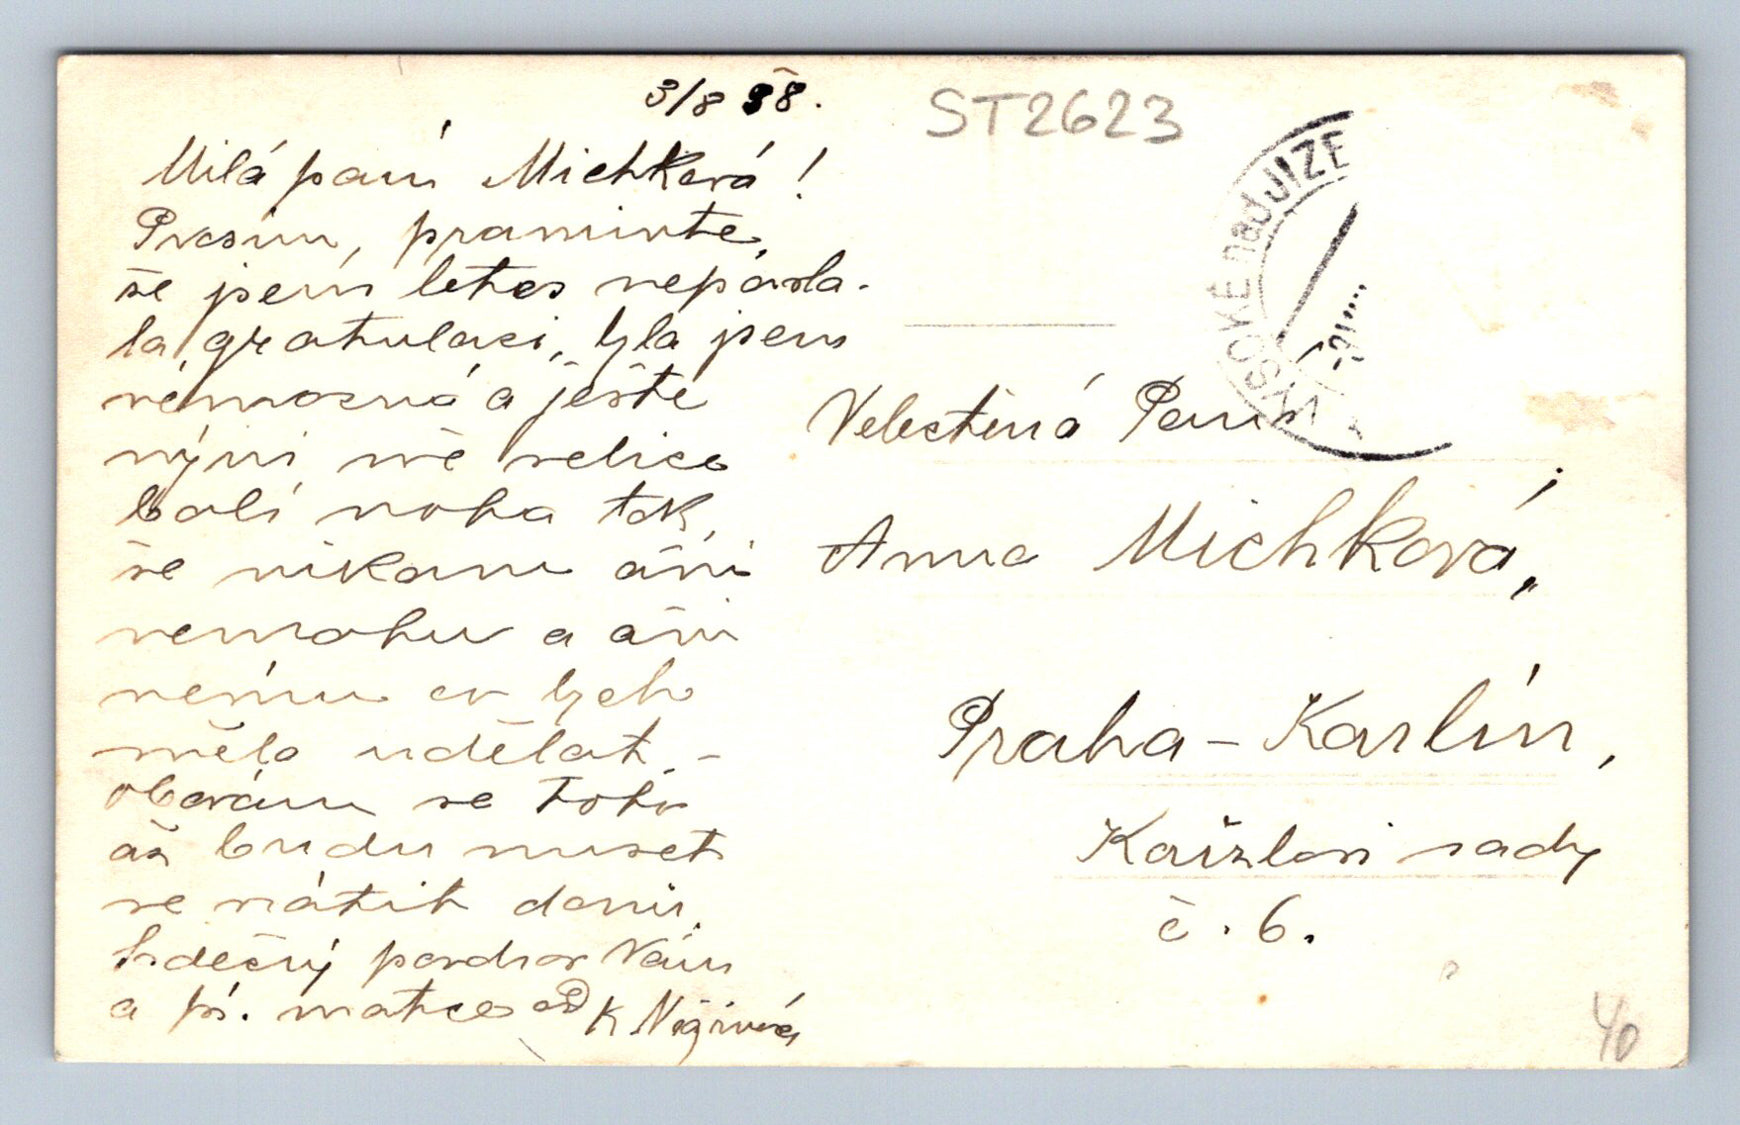 3/8 38.
Milá paní Michková!
Prosím, prominte,
že jsem letos neposla-
la gratulaci, byla jsem
nemocná a ješte
nýni mě velice
bolí noha tak,
že nikam ani
nemohu a ani
nevím co bych
měla udělat, -
obávám se toho
až budu muset
se vrátit domů,
Srdečný pozdrav Vám
a pí. matce od K
ST2623
VYSOKÉ nad JIZE
Velectěná Paní
Anna Michková,
Praha - Karlín,
Kaizlovi sady
č. 6.
40